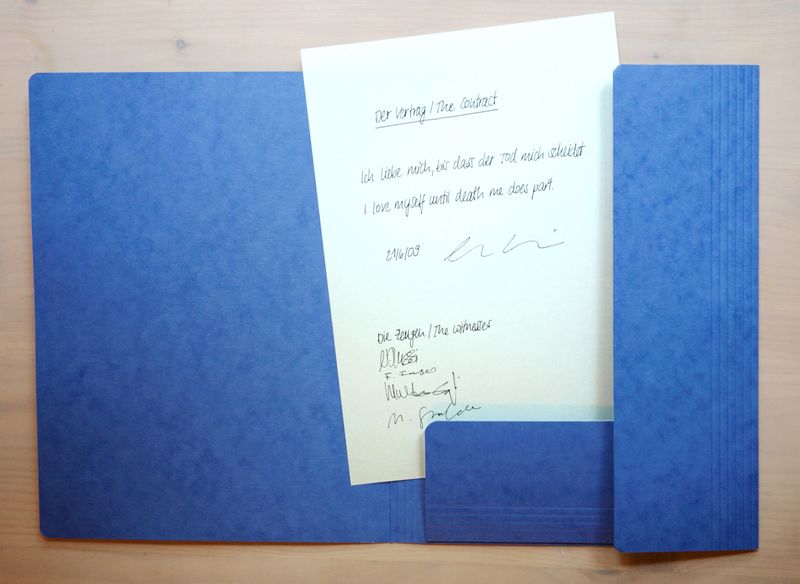 Der Vertrag / The Contract
Ich liebe mich, bis dass der Tod mich scheidet.
I love myself until death me does part.
21/6/09
Die Zeugen / The Witnesses